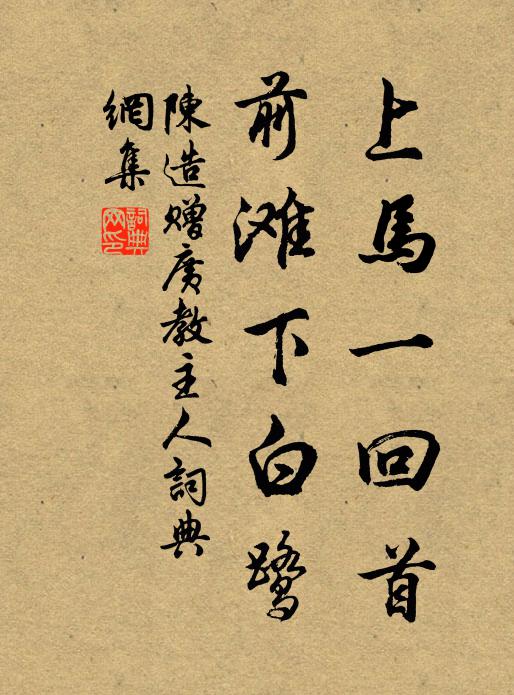 上馬一回首
前滩下白鹭
陳造赠廣教主人詞典
網集
詞典
网印